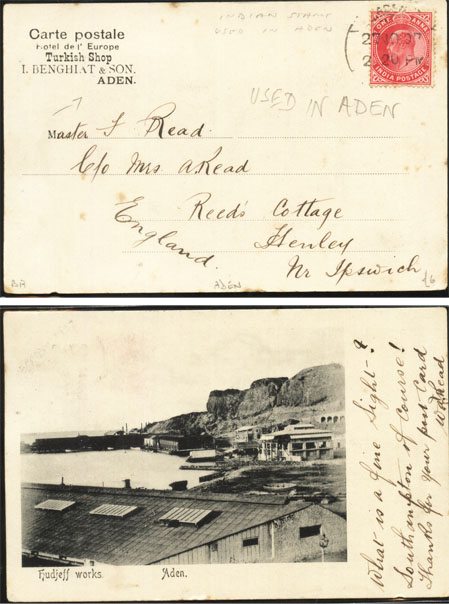 Carte postale
Hotel de l' Europe
Turkish Shop
I. BENGHIAT & SON.
ADEN.
INDIAN STAMP
USED IN ADEN
ONE ANNA
INDIA POSTAGE
USED IN ADEN
Master F Read.
C/o Mrs A Read
Reed's Cottage
Henley
Nr Ipswich
England.
ADEN
What is a fine Sight?
Southampton of Course!
Thanks for your post Card
Hudjeff works. Aden.